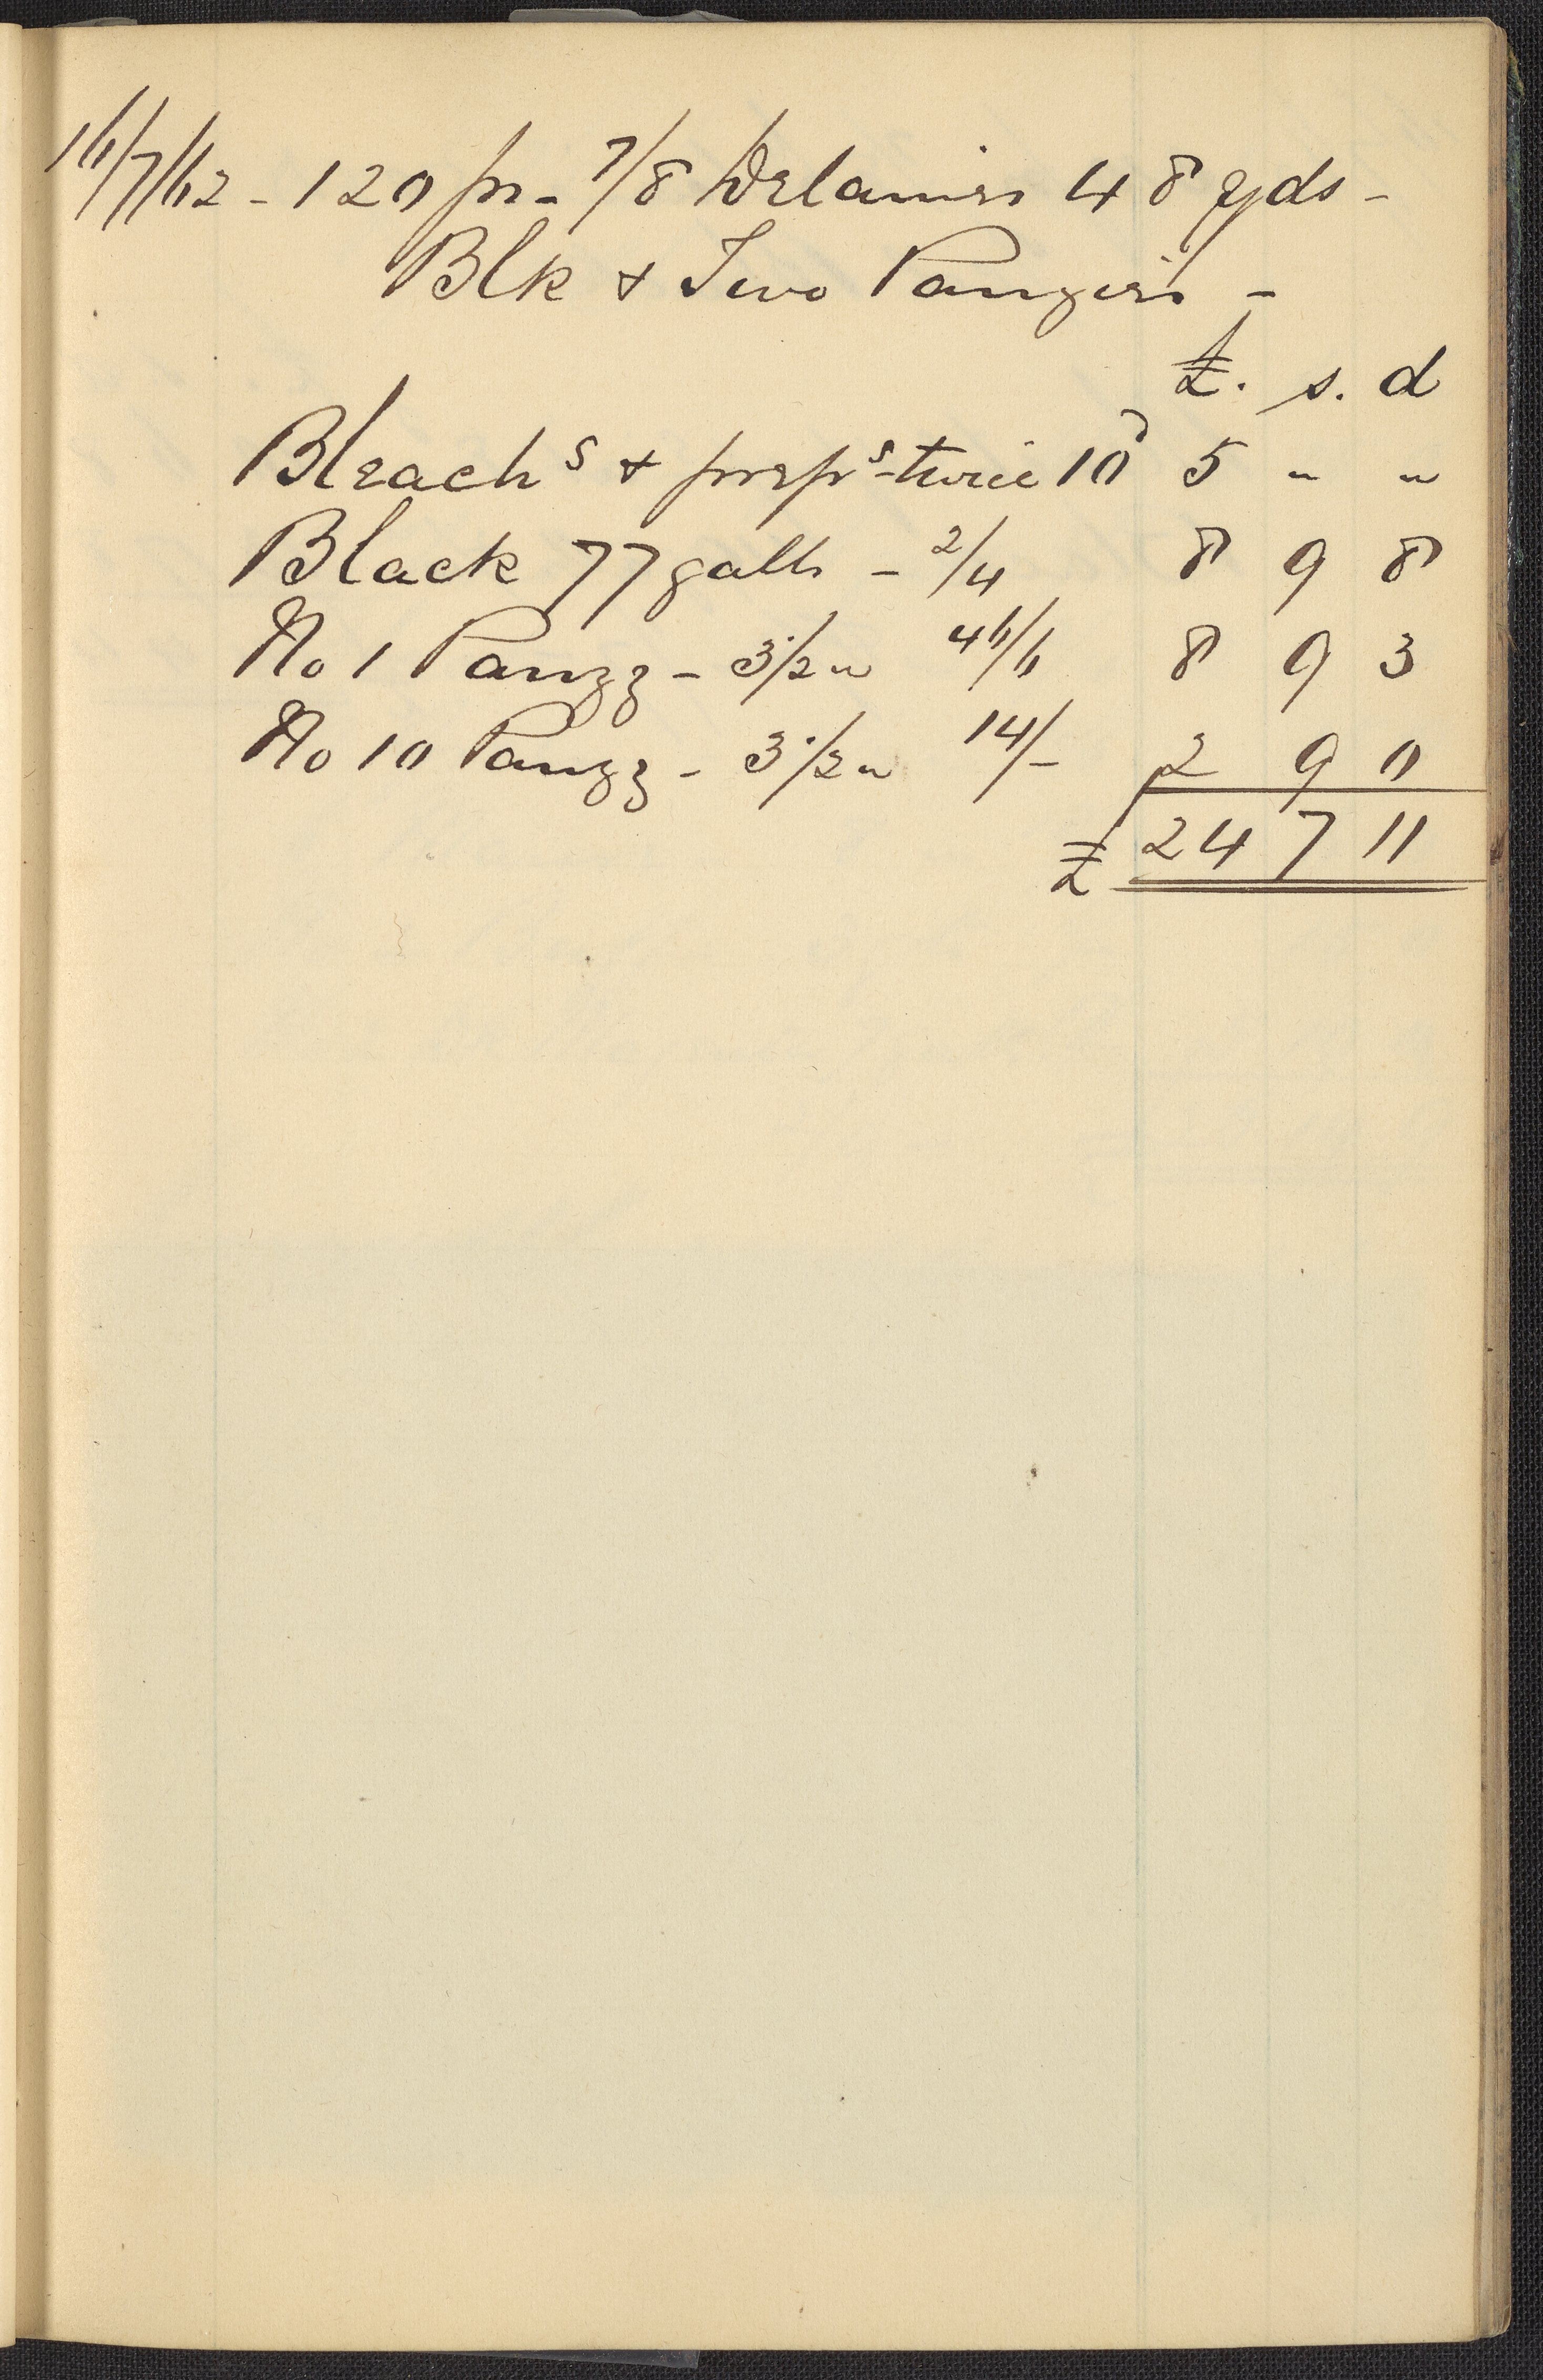 16/7/62 - 120 ps - 7/8 Delaines 48 yds -
Blk & Two Panzies -
£. s. d
Bleachg & prepg - twice 10d 5 " "
Black 77 galls - 2/4 8 9 8
No 1 Panzy - 3 1/2 " 46/6 8 9 3
No 10 Panzy - 3 1/2 " 14/- 2 9 0
£ 24 7 11